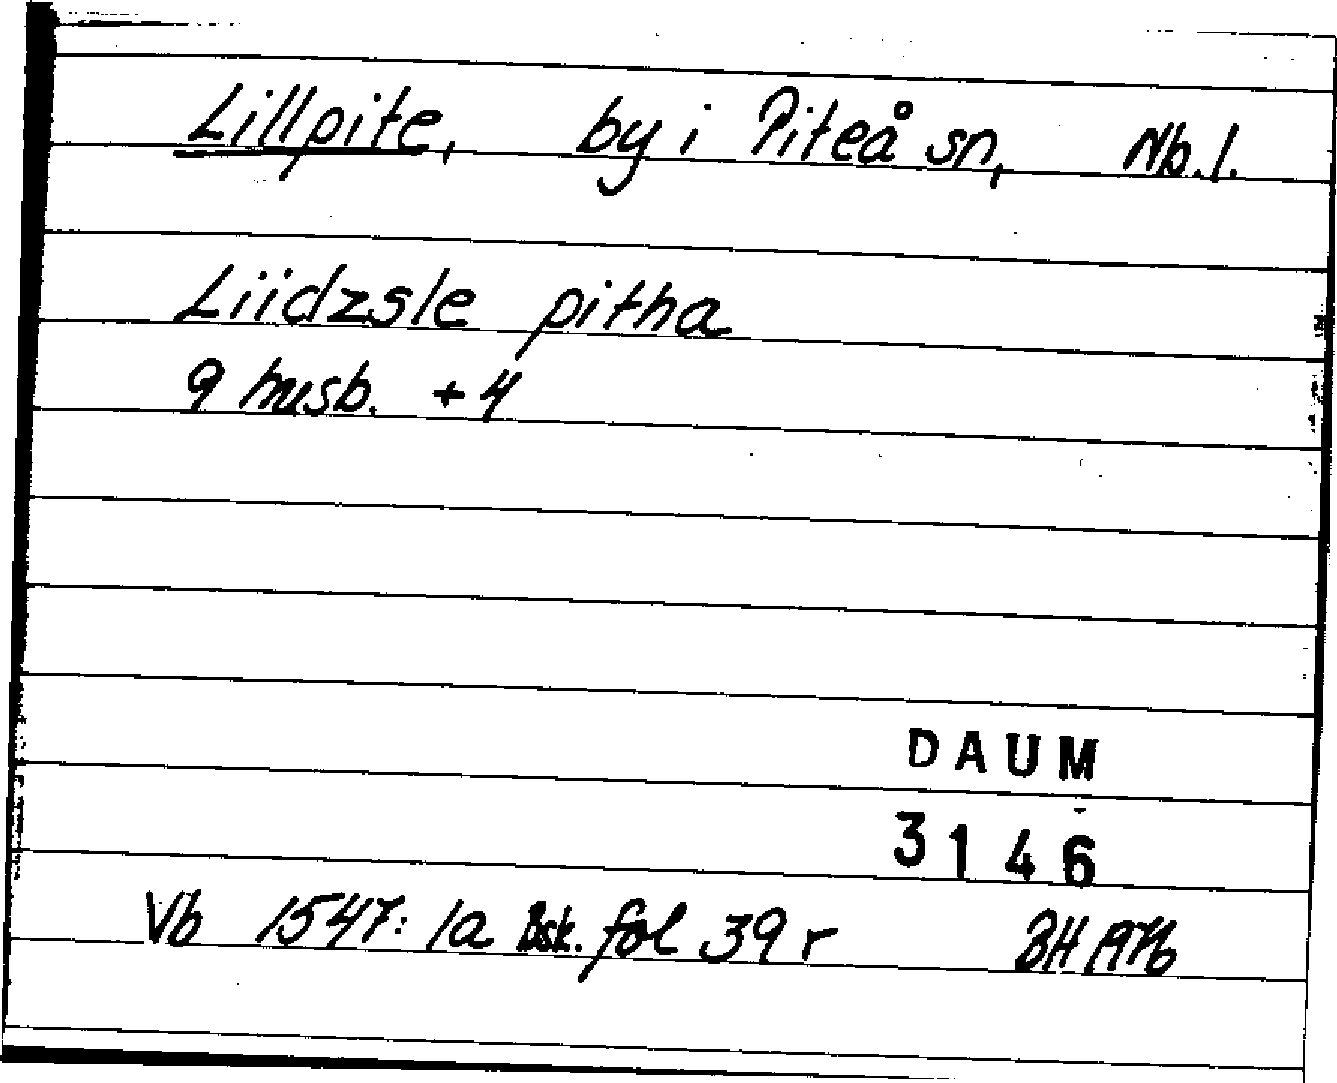 Lillpite, by i Piteå sn, Nb.l.
Liidzsle pitha
9 husb. + 4
DAUM
3146
Vb 1547: 1a Bsk. fol 39 r BH 1976